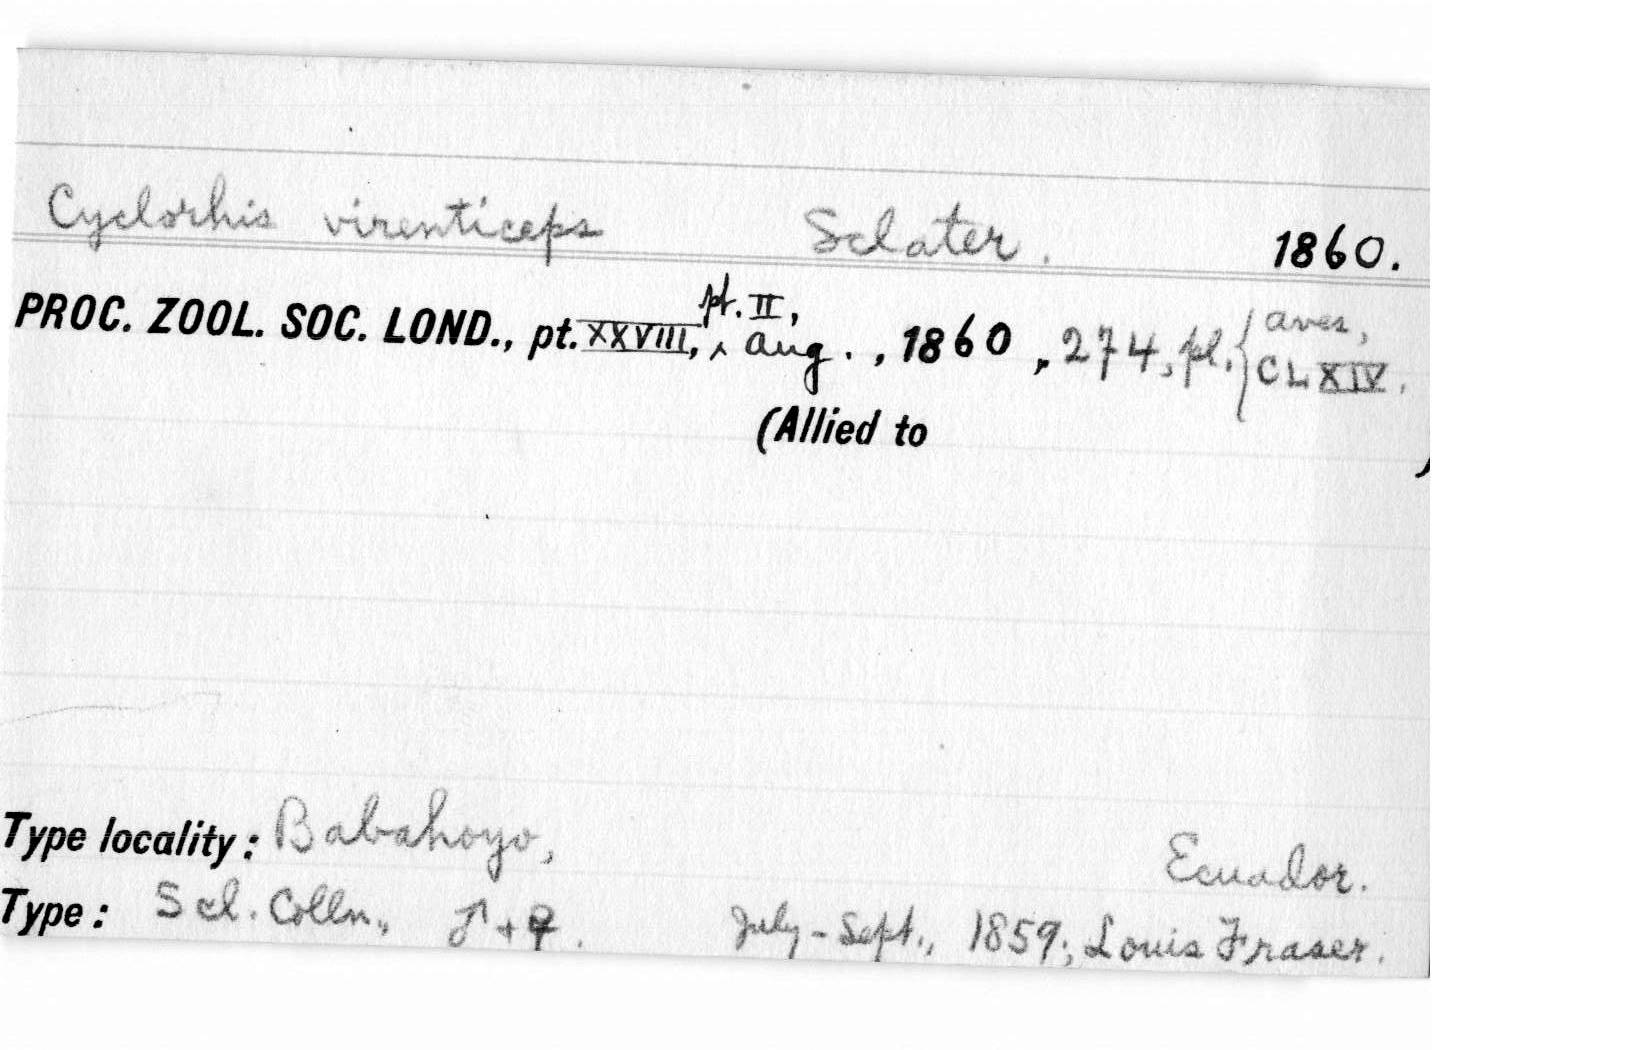 Cyclorhis virenticeps Sclater. 1860.
PROC. ZOOL. SOC. LOND., pt. XXVIII, ‸ pt. II, Aug. , 1860 , 274, pl. { Aves, CLXIV.
(Allied to )
Type locality: Babahoyo, Ecuador.
Type: Scl. Colln., ♂ + ♀. July - Sept., 1859; Louis Fraser.